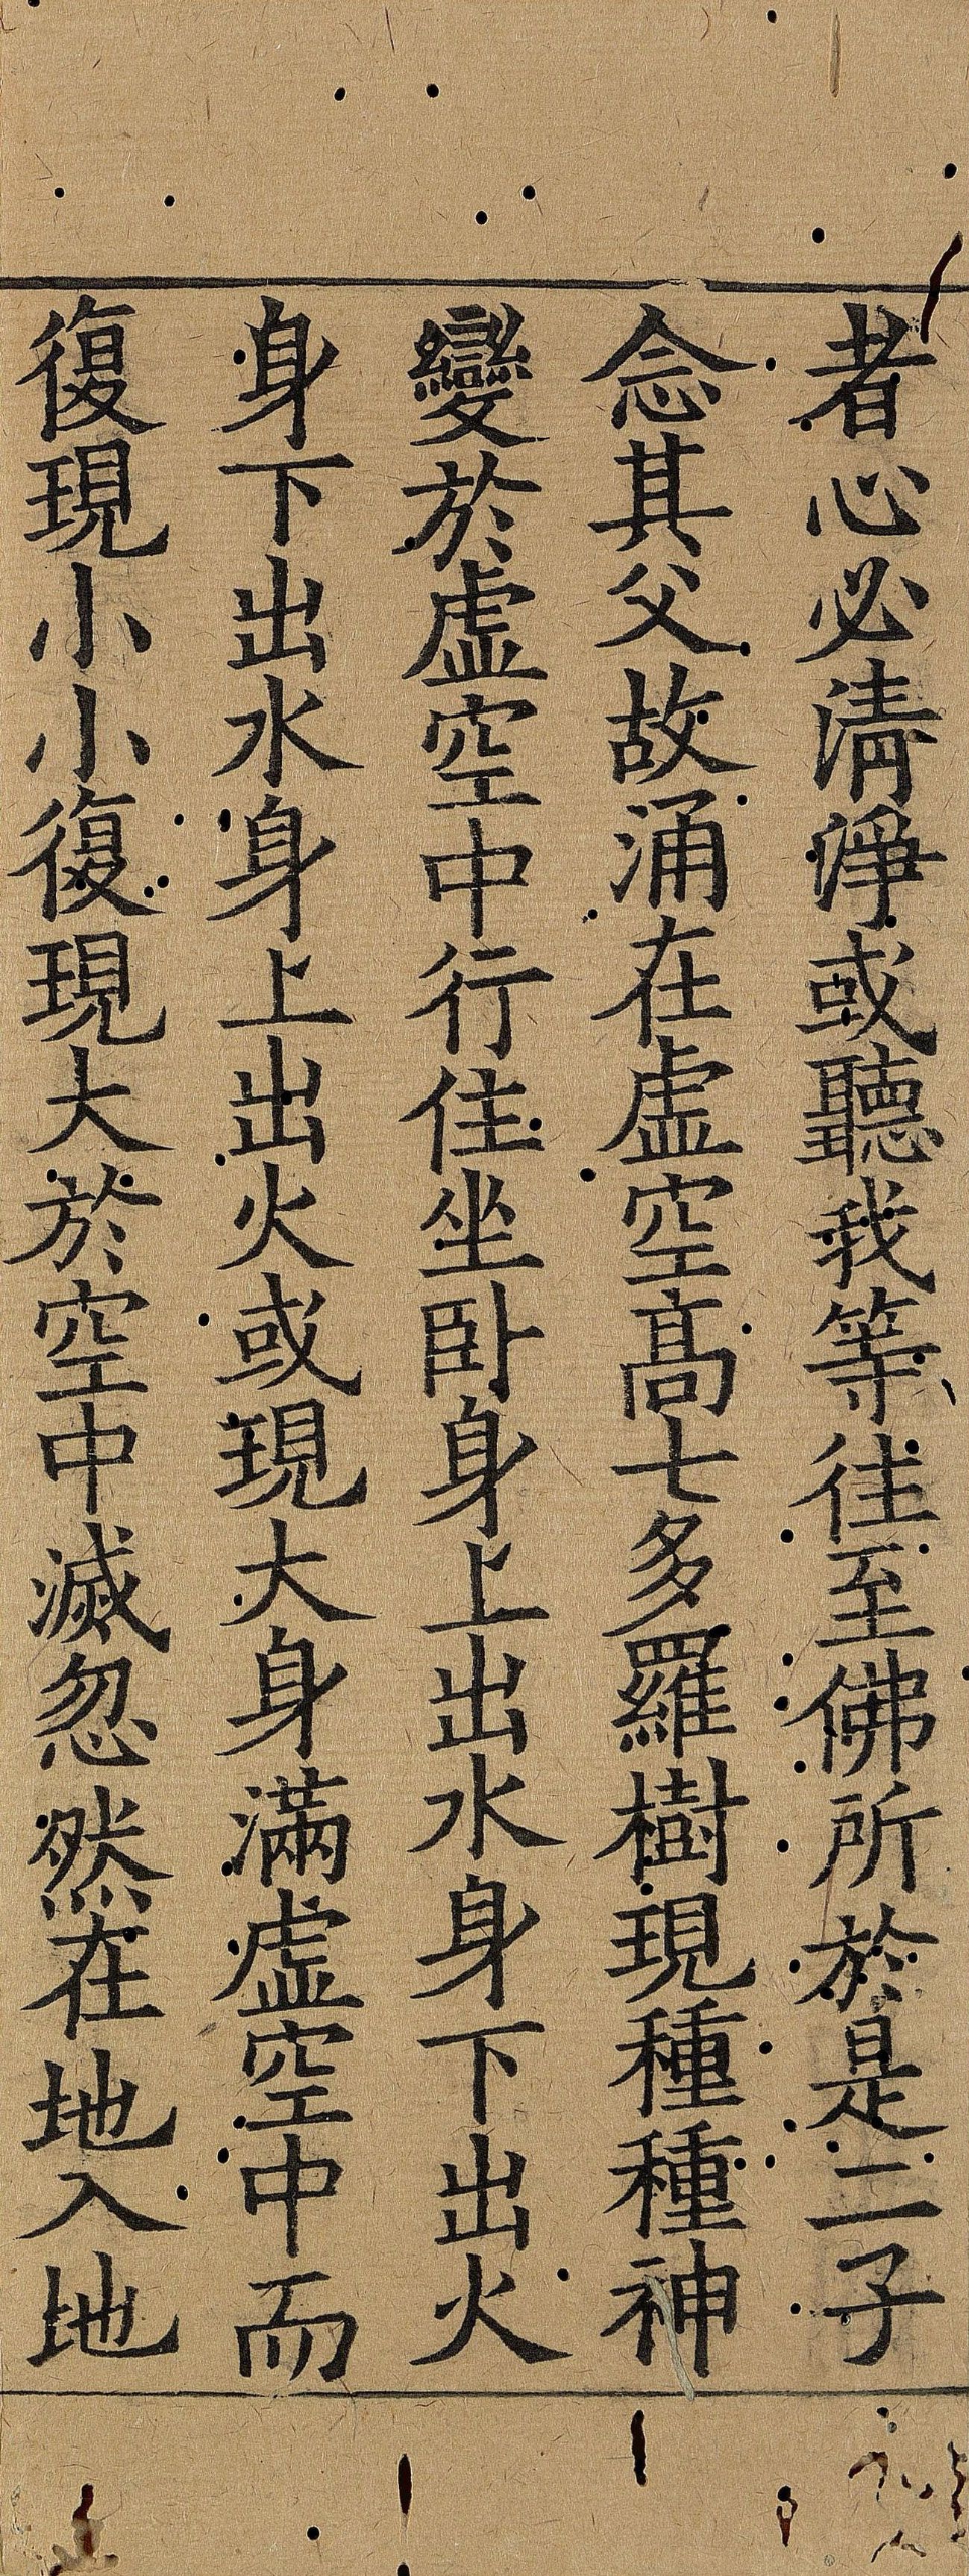 者心必清淨或聽我等徃至佛所於是二子
念其父故涌在虛空髙七多羅樹現種種神
變於虛空中行住坐卧身上出水身下出火
身下出水身上出火或現大身滿虛空中而
復現小小復現大於空中滅忽然在地入地